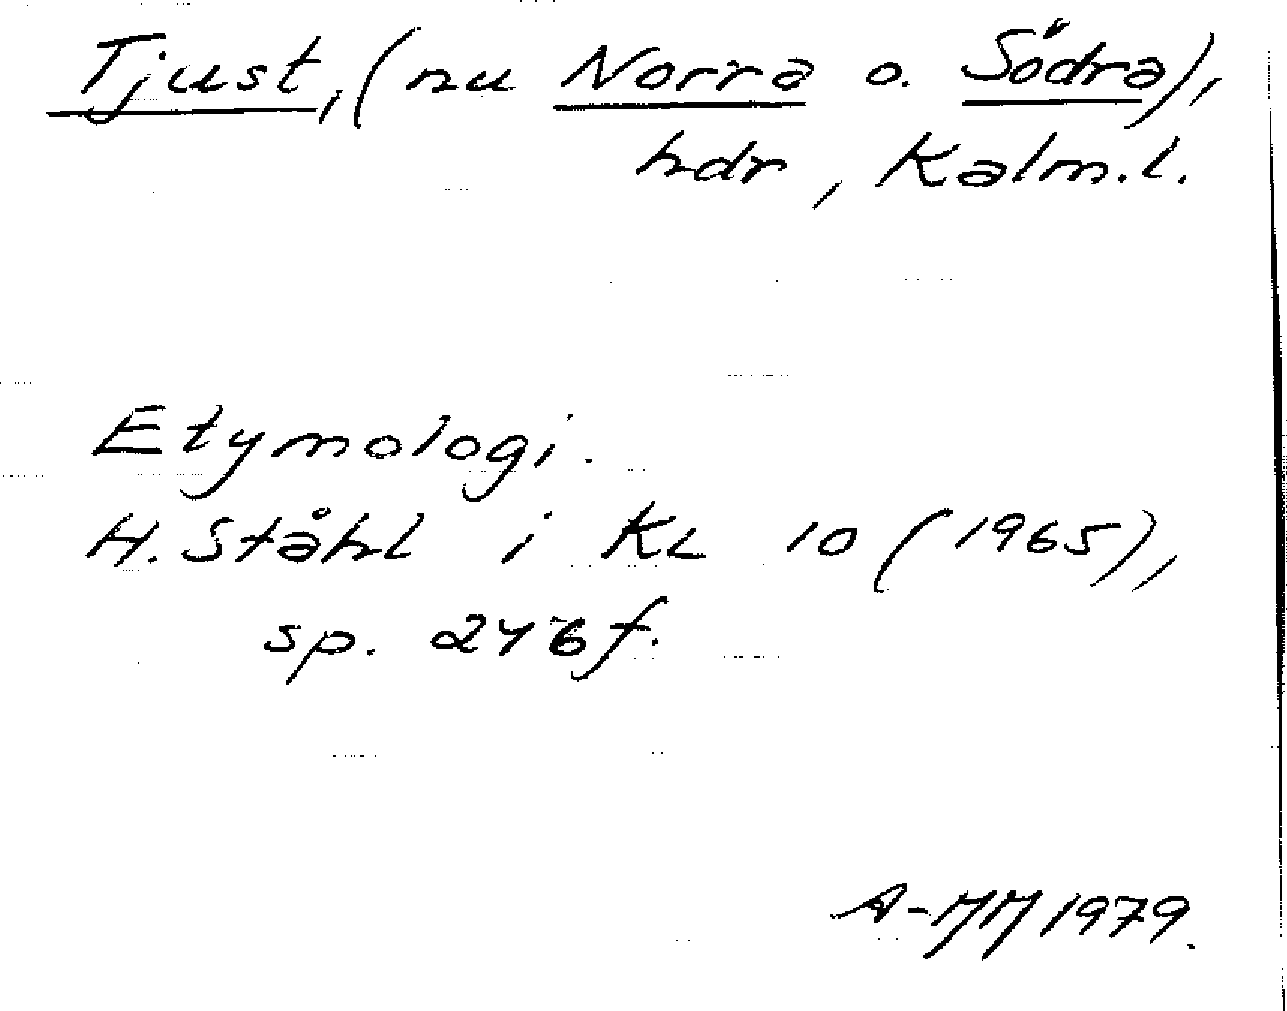 Tjust, (nu Norra o. Södra),
hdr, Kalm.l.
Etymologi.
H. Ståhl i KL 10 (1965),
sp. 246 f.
A-MM 1979.